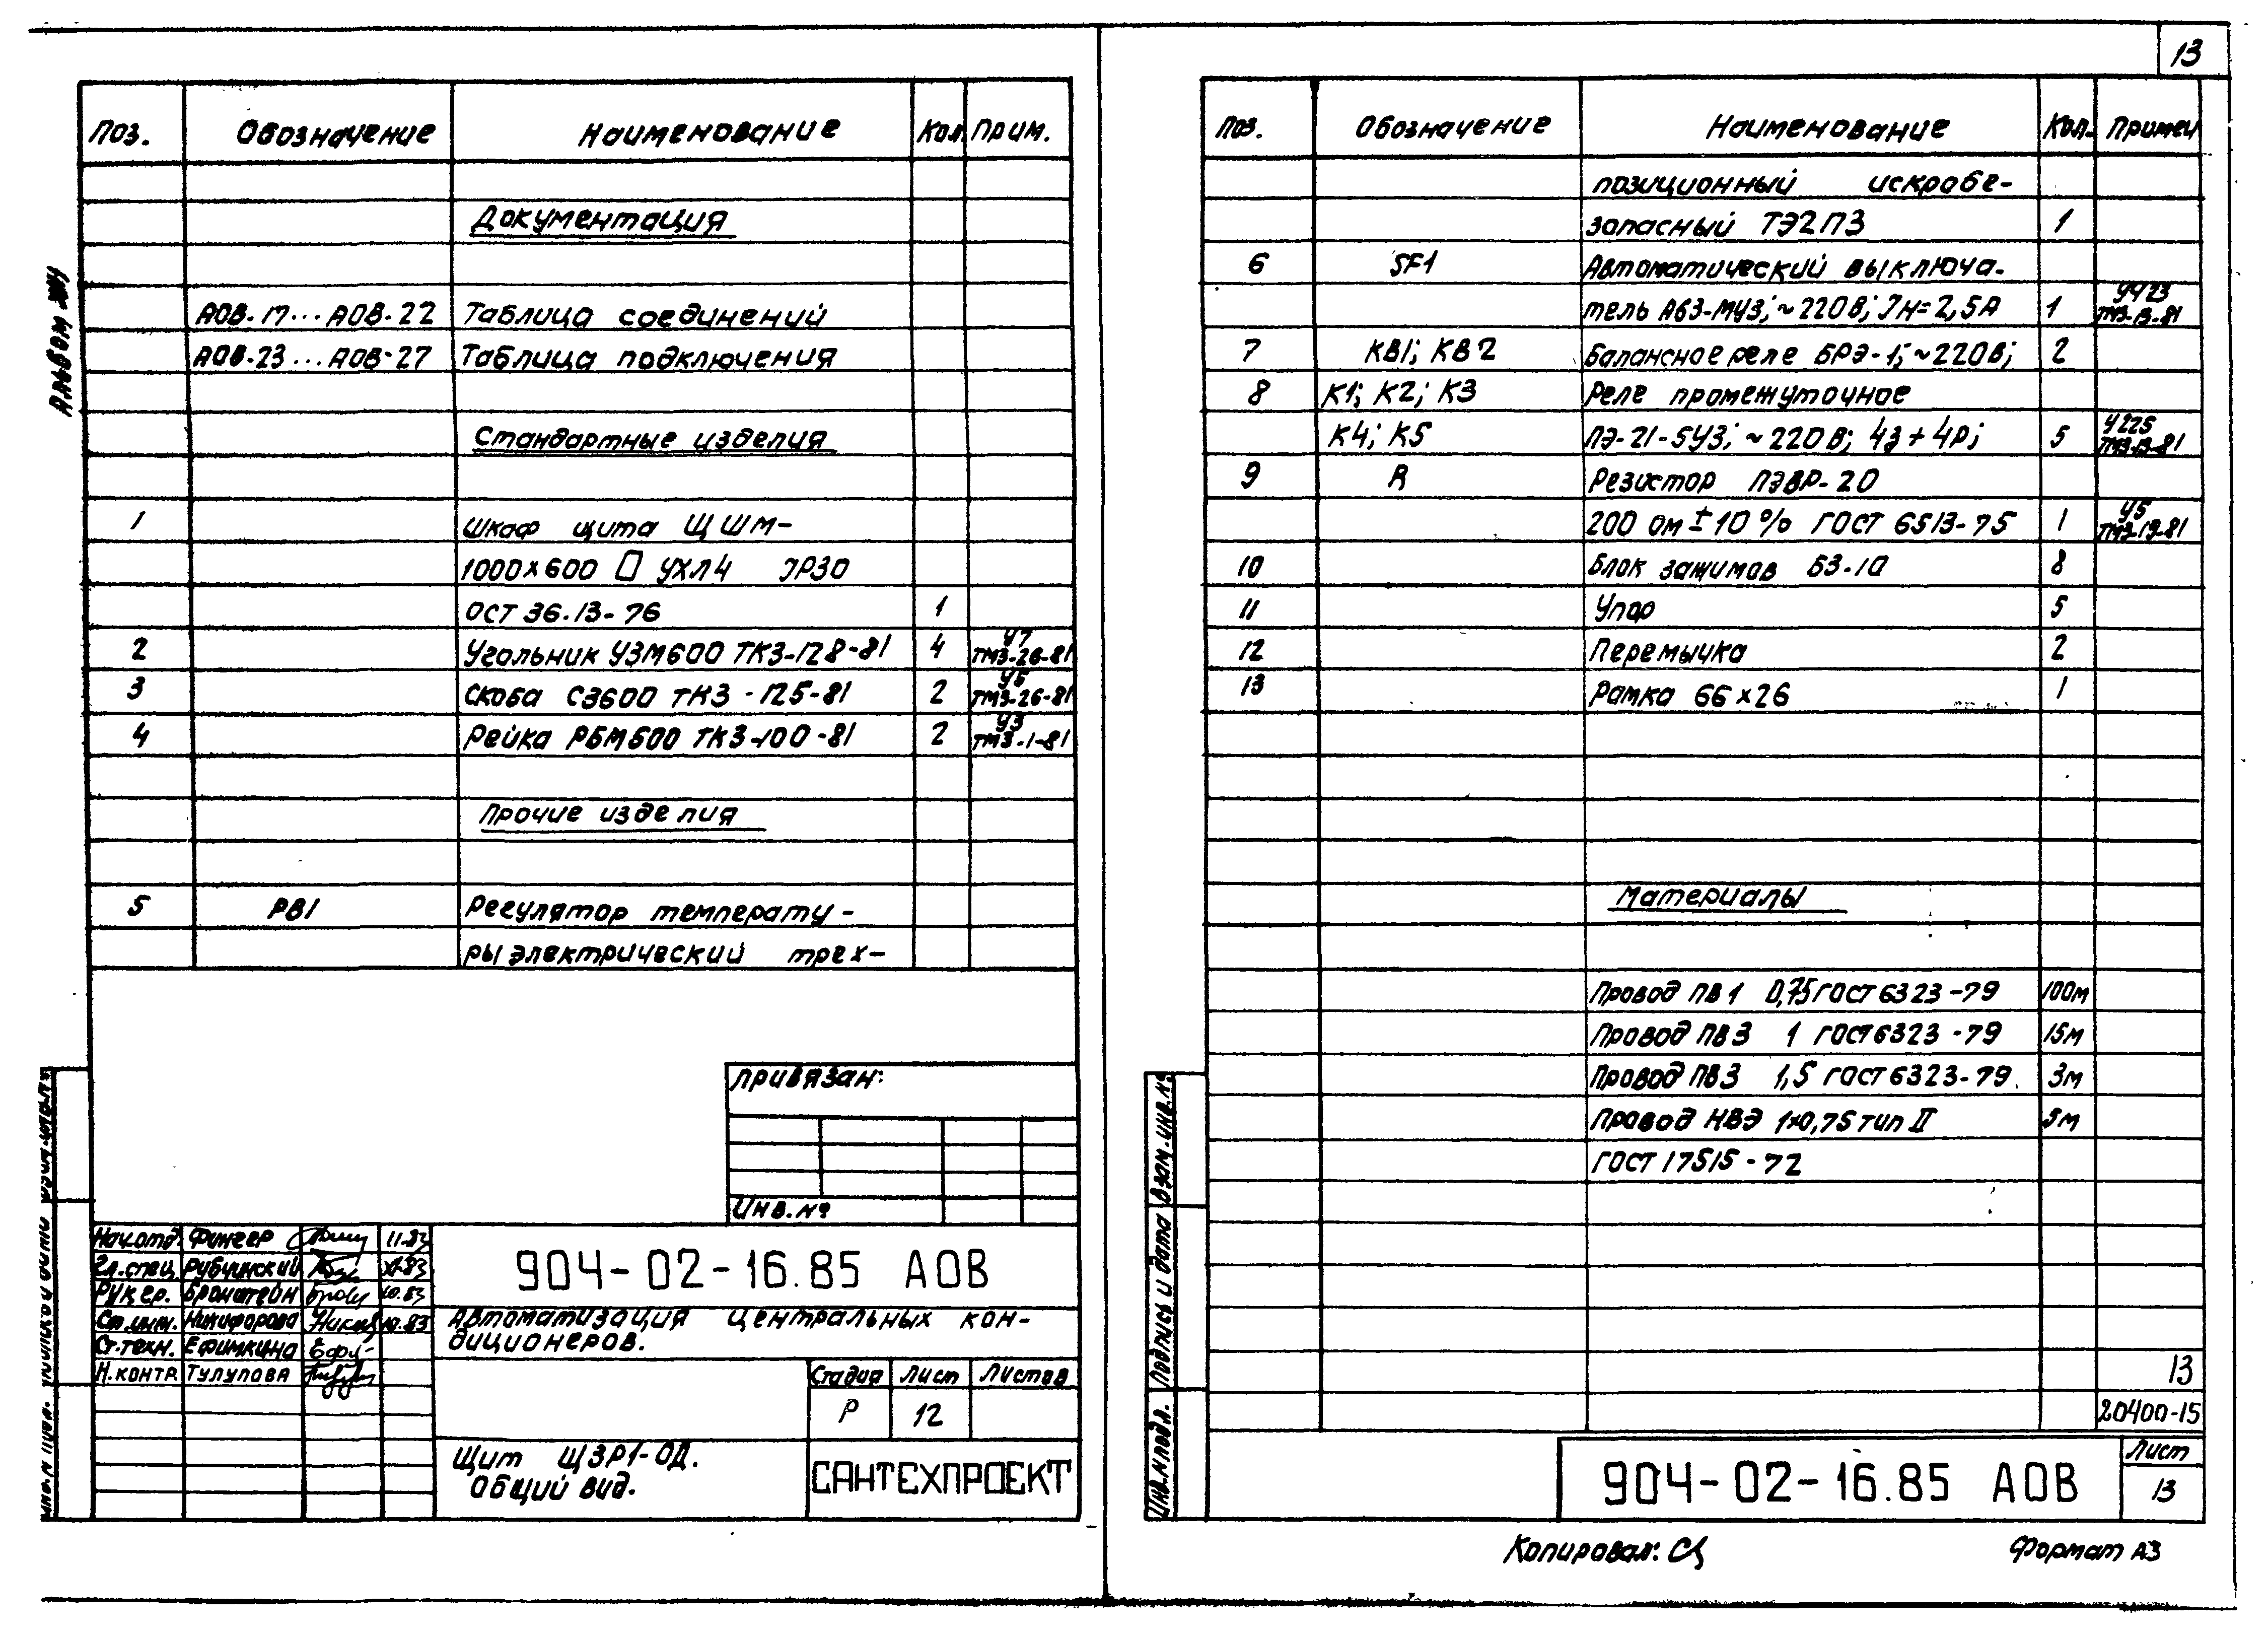 13
Поз. Обозначение Наименование Кол. Прим.
Документация
АОВ-17...АОВ-22 Таблица соединений
АОВ-23...АОВ-27 Таблица подключения
Стандартные изделия
1 Шкаф щита ЩШМ-
1000×600 УХЛ4 JP30
ОСТ 36.13-76 1
2 Угольник УЗМ600 ТКЗ-128-81 4 У7 ТМ3-26-81
3 Скоба С3600 ТКЗ-125-81 2 У6 ТМ3-26-81
4 Рейка РБМ600 ТКЗ-100-81 2 У3 ТМ3-1-81
Прочие изделия
5 РВ1 Регулятор температу-
ры электрический трех-
Альбом
Привязан:
Инв.№
Нач.отд. Фингер 11.83
Гл.спец. Рубчинский XI-83
Рук.гр. Бронштейн 10.83
Ст.инж. Никифорова 10.83
Ст.техн. Ефимкина
Н.контр. Тулупова
904-02-16.85 АОВ
Автоматизация центральных кон-
диционеров.
Стадия Лист Листов
Р 12
Щит ЩЗР1-ОД.
Общий вид.
САНТЕХПРОЕКТ
Поз. Обозначение Наименование Кол. Примеч
позиционный искробе-
запасный ТЭ2П3 1
6 SF1 Автоматический выключа-
тель А63-МУ3; ~220В; Jн=2,5А 1 УЧ23 ТМ3-13-81
7 КВ1; КВ2 Балансное реле БРЭ-1; ~220В; 2
8 К1; К2; К3 Реле промежуточное
К4; К5 ПЭ-21-5У3; ~220В; 4з+4р; 5 У225 ТМ3-13-81
9 R Резистор ПЭВР-20
200 ом ±10% ГОСТ 6513-75 1 У5 ТМ3-13-81
10 Блок зажимов БЗ-10 8
11 Упор 5
12 Перемычка 2
13 Рамка 66×26 1
Материалы
Провод ПВ1 0,75 ГОСТ 6323-79 100м
Провод ПВ3 1 ГОСТ 6323-79 15м
Провод ПВ3 1,5 ГОСТ 6323-79 3м
Провод НВЭ 1×0,75 тип II 5м
ГОСТ 17515-72
13
20400-15
Инв.№подл. Подпись и дата Взам.инв.№
904-02-16.85 АОВ
Лист
13
Копировал:
Формат А3